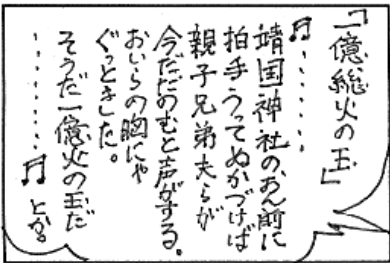 「一億総火の玉」
♬………
靖国神社のおん前に
拍手うってぬかづけば
親子兄弟夫らが
今だたのむと声がする。
おいらの胸にや
ぐっときした。
そうだ一億火の玉だ
………♬とか。